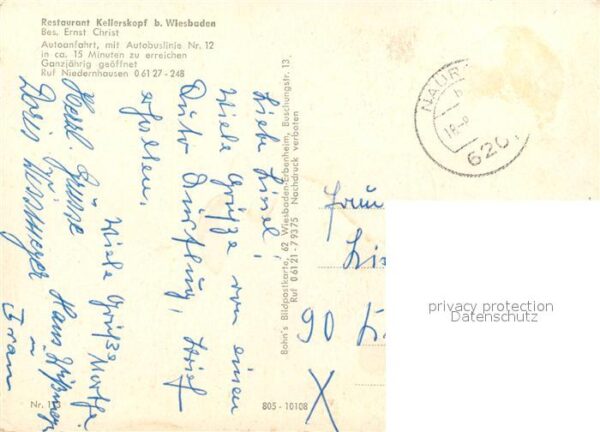 Restaurant Kellerskopf b. Wiesbaden
Bes. Ernst Christ
Autoanfahrt, mit Autobuslinie Nr. 12
in ca. 15 Minuten zu erreichen
Ganzjährig geöffnet
Ruf Niedernhausen 0 61 27 - 248
Liebe Liesel!
Viele Grüße von einem
Auto Ausflug,
erhalten.
Viele Grüße
Herzl. Grüsse
Doris Hans
u
Frau
Nr. 1
Bohn's Bildpostkarte, 62 Wiesbaden-Erbenheim, Buschungstr. 13
Ruf 0 61 21 - 7 93 75 Nachdruck verboten
805 - 10108
NAUR
18.
620
Frau
90
X
privacy protection
Datenschutz